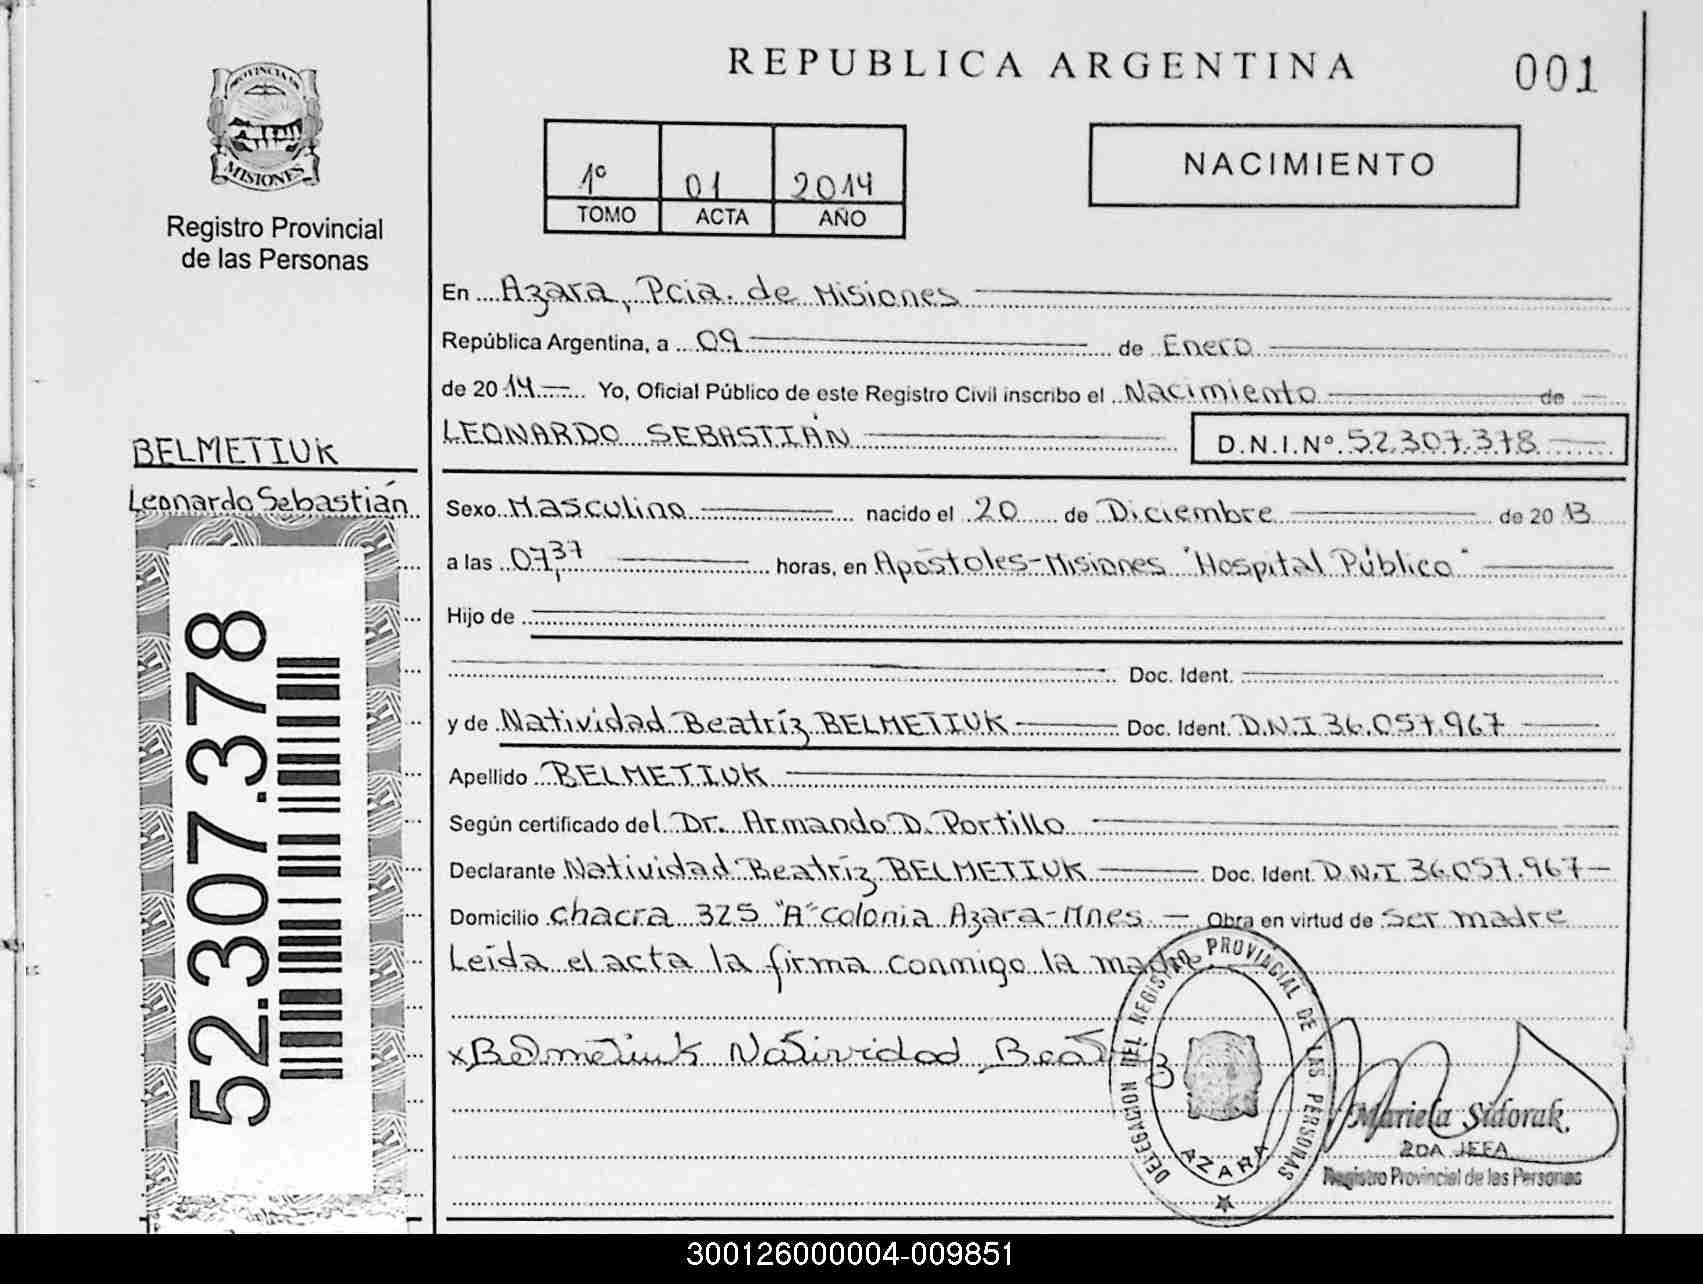 REPUBLICA ARGENTINA
001
PROVINCIA DE
MISIONES
Registro Provincial
de las Personas
1º 01 2014
TOMO ACTA AÑO
NACIMIENTO
En Azara, Pcia. de Misiones
República Argentina, a 09 de Enero
de 2014 Yo, Oficial Público de este Registro Civil inscribo el Nacimiento de
LEONARDO SEBASTIÁN D.N.I.Nº 52.307.378
BELMETIUK
Leonardo Sebastián
52.307.378
Sexo Masculino nacido el 20 de Diciembre de 2013
a las 07,37 horas, en Apóstoles-Misiones "Hospital Público"
Hijo de
Doc. Ident.
y de Natividad Beatríz BELMETIUK Doc. Ident. D.N.I 36.057.967
Apellido BELMETIUK
Según certificado del Dr. Armando D. Portillo
Declarante Natividad Beatríz BELMETIUK Doc. Ident. D.N.I 36.057.967
Domicilio chacra 325 "A" colonia Azara-Mnes. Obra en virtud de ser madre
Leída el acta la firma conmigo la madre.
x Belmetiuk Natividad Beatriz
DELEGACION DEL REGISTRO PROVINCIAL DE LAS PERSONAS
AZARA
Mariela Sidorak.
2DA JEFA
Registro Provincial de las Personas
300126000004-009851